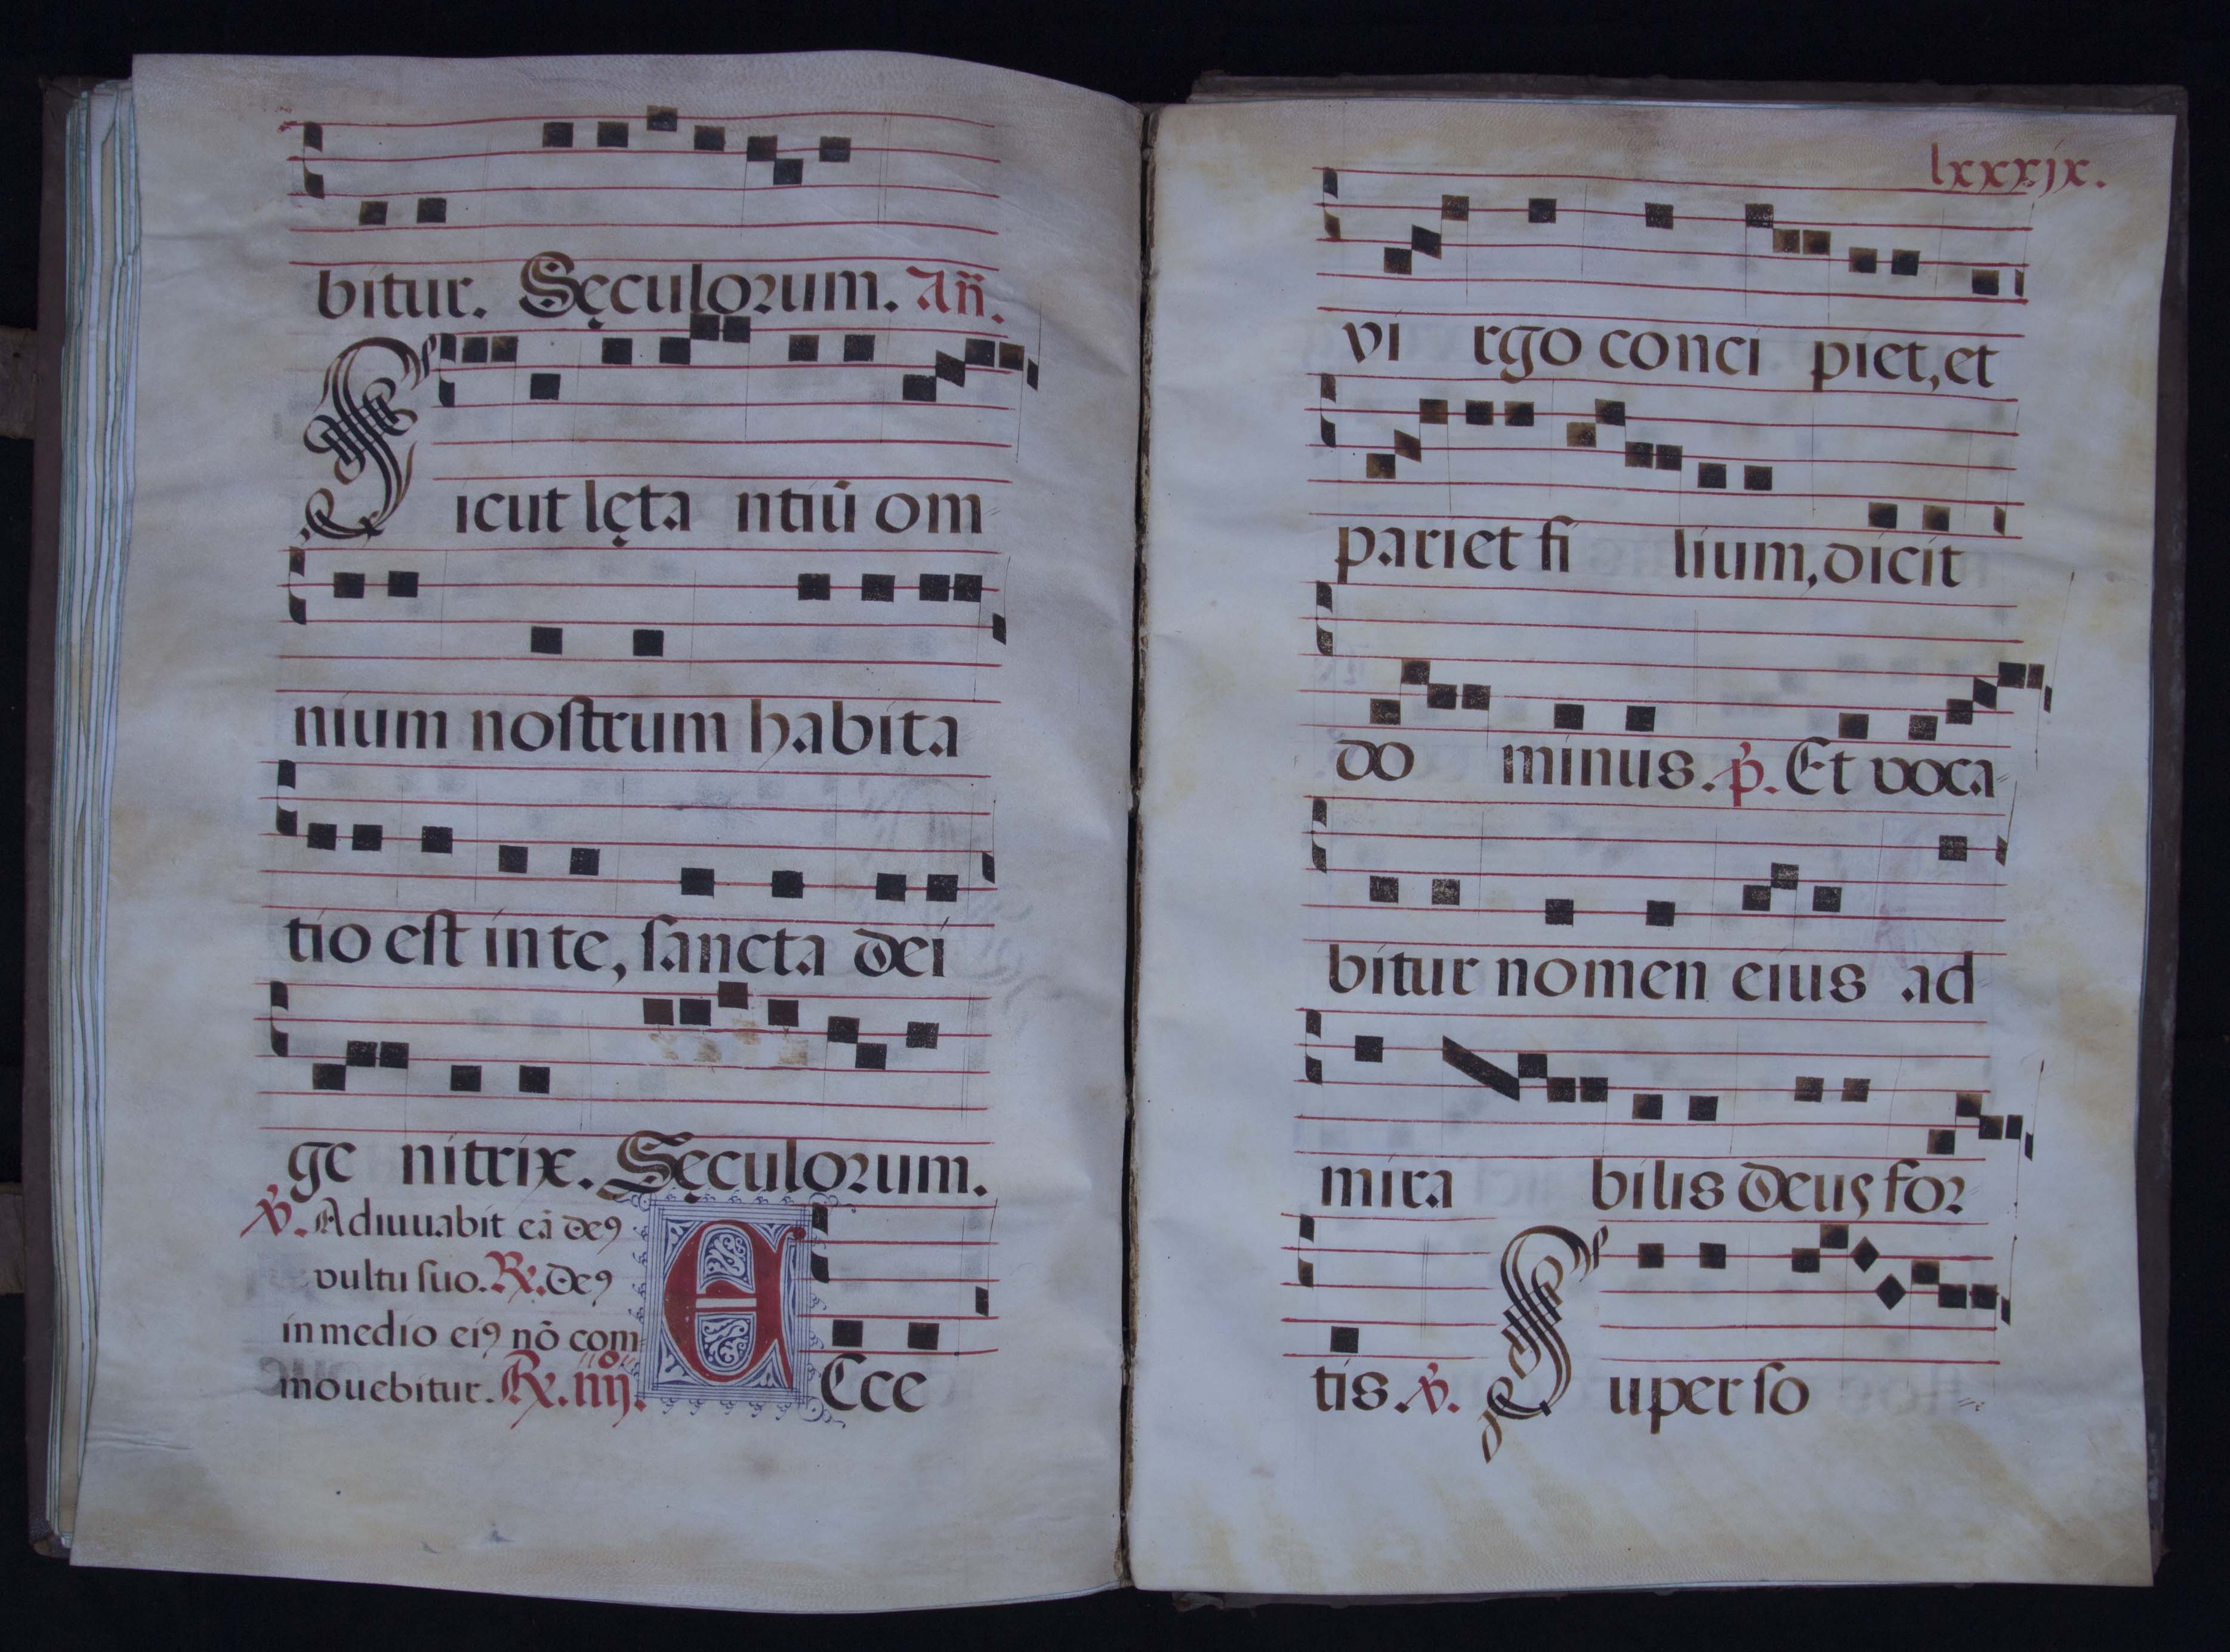 bitur. Sęculorum. Añ.
Sicut lęta ntiū om
nium nostrum habita
tio est in te, sancta dei
ge nitrix. Sęculorum.
℣. Adiuuabit eā deꝯ
vultu suo. ℟. deꝯ
in medio eiꝯ nō com
mouebitur. ℟. iiij.
ECce
lxxxjx.
vi rgo conci piet, et
pariet fi lium, dicit
do minus. p̃. Et voca
bitur nomen eius ad
mira bilis deus for
tis. ℣. Super so